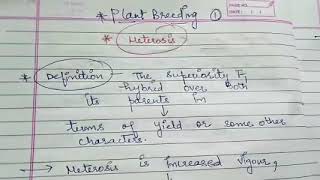 * Plant Breeding ①
PAGE NO.
DATE: / /
* Heterosis
* Definition → The superiority F₁
hybrid over both
its parents in
terms of yield or some other
characters.
→ Heterosis is increased vigour,